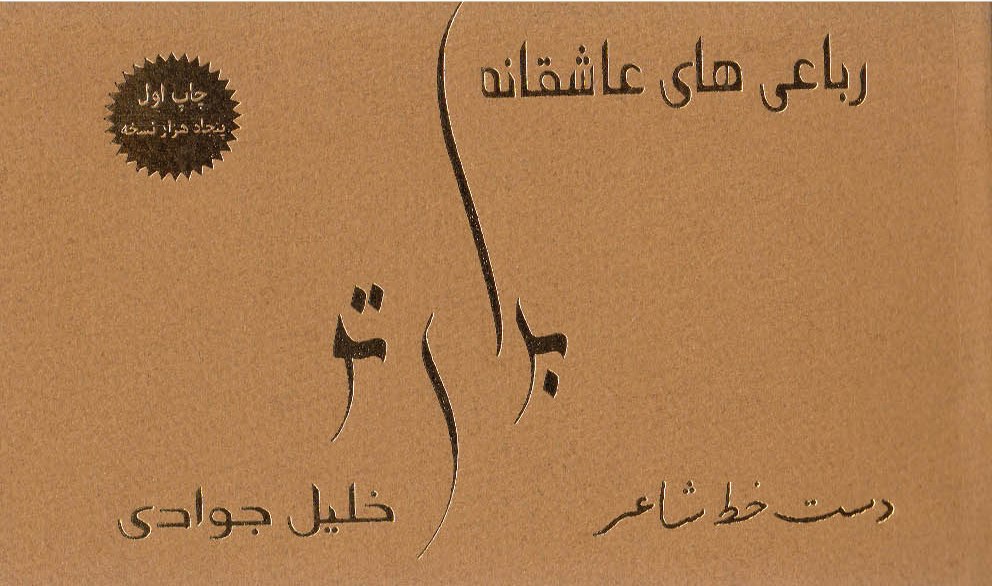 رباعی های عاشقانه
چاپ اول
پنجاه هزار نسخه
برای تو
دست خط شاعر
خلیل جوادی